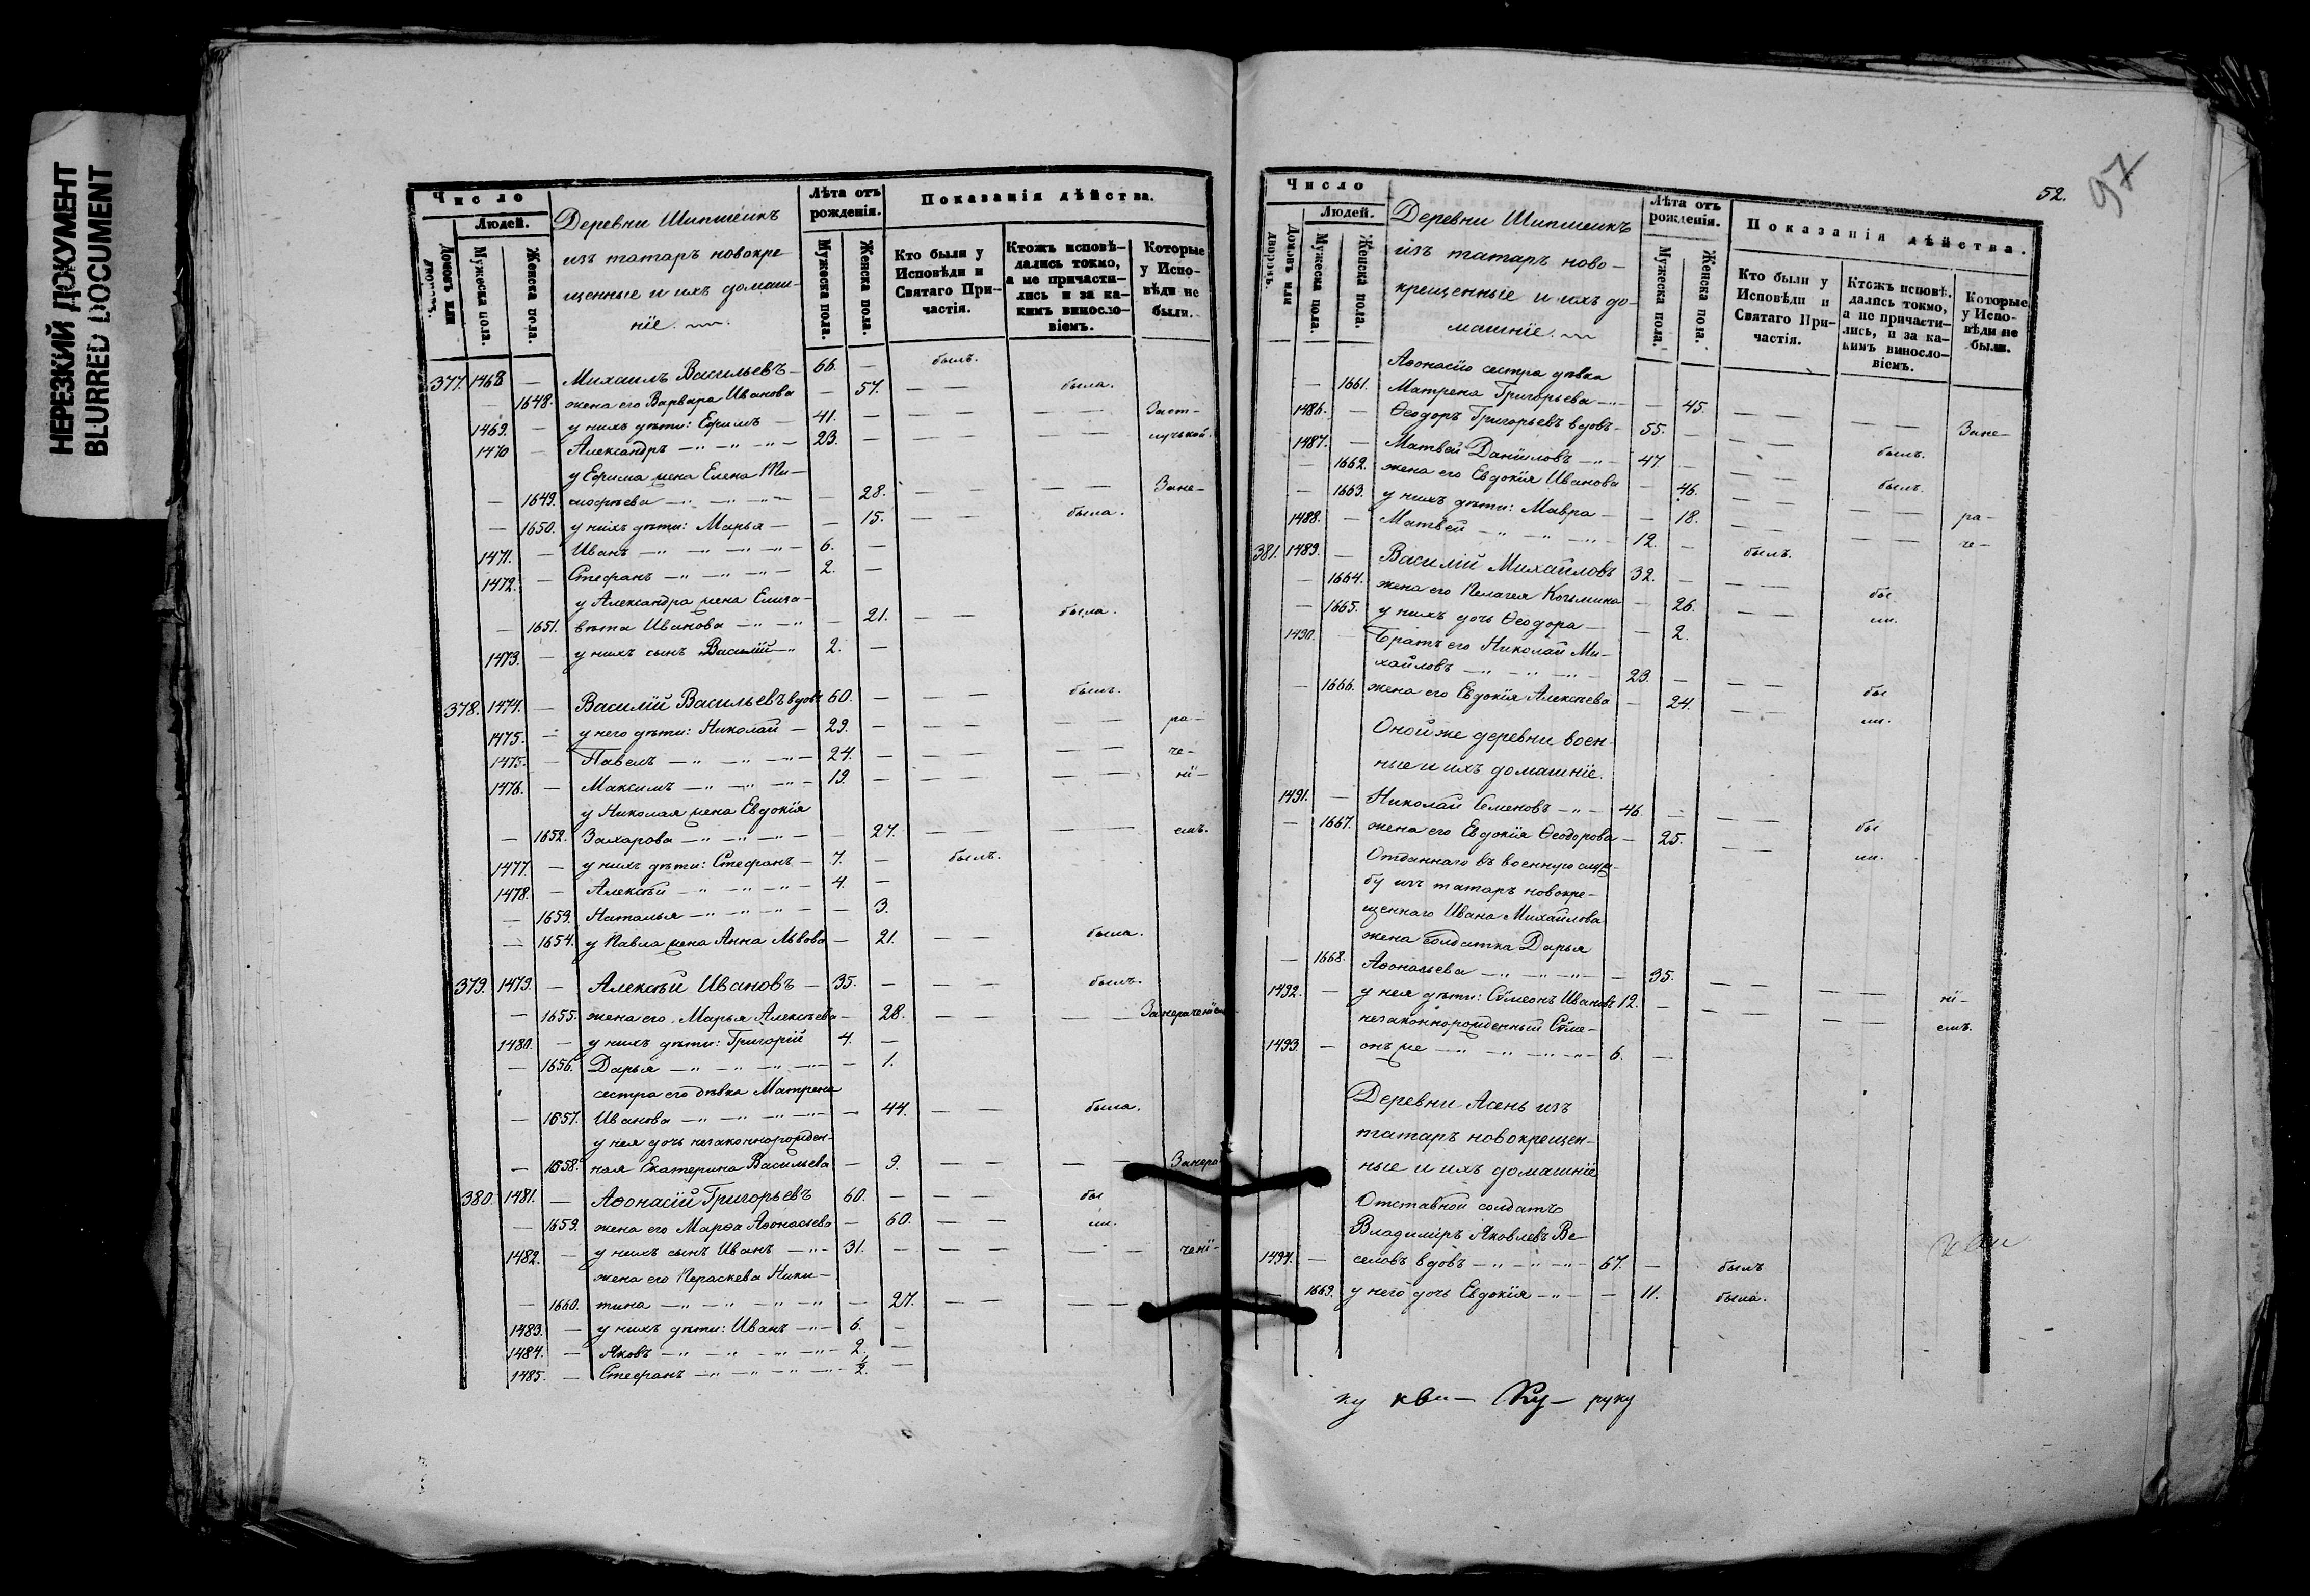 НЕРЕЗКИЙ ДОКУМЕНТ
BLURRED DOCUMENT
Число
Людей.
Домовъ или дворовъ.
Мужеска пола.
Женска пола.
Деревни Шипшеикъ
изъ татаръ новокре
щенные и ихъ домаш-
нїе.
Лѣта отъ рожденія.
Мужеска пола.
Женска пола.
Показанія дѣйства.
Кто были у Исповѣди и Святаго При-частія.
Ктожъ исповѣ-дались токмо, а не причасти-лись и за ка-кимъ винословіемъ.
Которые у Испо-вѣди не были.
377. 1468 — Михаилъ Васильевъ — 66. — былъ.
— 1648. жена его Варвара Иванова — 57. — — была.
1469. — у нихъ дѣти: Ефимъ — 41. — — — — — Заот-
1470 — Александръ —„— —„— 23. — — — — — лучкой.
у Ефима жена Елена Ти-
— 1649. мофѣева —„— —„— — 28. — — — — Зане-
— 1650. у нихъ дѣти: Марья — — 15. — — была.
1471. — Иванъ —„— —„— 6. —
1472. — Стефанъ —„— —„— 2. —
у Александра жена Елиза-
— 1651. вѣта Иванова —„— — 21. — — была.
1473. — у нихъ сынъ Василїй —„ 2. —
378. 1474. — Василїй Васильевъ вдовъ 60. — — — былъ.
1475. — у него дѣти: Николай — 29. — — — — — ра-
1475. — Павелъ —„— —„— 24. — — — — — че-
1476. — Максимъ —„— —„— 19. — — — — — нї-
у Николая жена Евдокїя
— 1652. Захарова —„— —„— — 27. — — — — емъ.
1477. — у нихъ дѣти: Стефанъ — 7. — былъ.
1478. — Алексѣй —„— —„— 4. —
— 1653. Наталья —„— —„— — 3.
— 1654. у Павла жена Анна Львова — 21. — — была.
379. 1479. — Алексѣй Ивановъ — 35. — — — былъ.
— 1655. жена его Марья Алексѣева — 28. — — — — Занераченїем
1480. — у нихъ дѣти: Григорїй 4. —
— 1656. Дарья —„— —„— — 1.
сестра его дѣвка Матрена
— 1657. Иванова —„— —„— — 44. — — была.
у нея дочь незаконнорожден-
— 1658. ная Екатерина Васильева — 9. — — — — Занера
380. 1481. — Аѳонасїй Григорьевъ 60. — — — бы
— 1659. жена его Марѳа Аѳонасьева — 60. — — ли.
1482. — у нихъ сынъ Иванъ —„— 31. — — — — — ченї-
жена его Пераскева Ники-
— 1660. тина —„— —„— — 27. — — — —
1483. — у нихъ дѣти: Иванъ —„— 6. —
1484. — Яковъ —„— —„— 2. —
1485. — Стефанъ —„— —„— ½. —
52.
97
Число
Людей.
Домовъ или дворовъ.
Мужеска пола.
Женска пола.
Деревни Шипшеикъ
изъ татаръ ново-
крещенные и ихъ до-
машнїе.
Лѣта отъ рожденія.
Мужеска пола.
Женска пола.
Показанія дѣйства.
Кто были у Исповѣди и Святаго При-частія.
Ктожъ исповѣ. дались токмо, а не причасти-лись, и за ка-кимъ винословіемъ.
Которые у Испо-вѣди не были.
Аѳонасїю сестра дѣвка
— 1661. Матрена Григорьева —„— — 45. — —
1486. — Ѳеодоръ Григорьевъ вдовъ — 55. — — — — — Зане-
1487. — Матвей Данїиловъ —„— 47. — — — былъ.
— 1662. жена его Евдокїя Иванова — 46. — — былъ.
— 1663. у нихъ дѣти: Мавра — — 18. — — — — ра-
1488. — Матвей —„— —„— 12. — — — — — че-
381. 1489. — Василїй Михайловъ 32. — былъ.
— 1664. жена его Пелагея Козьмина — 26. — — бы
— 1665. у нихъ дочь Ѳеодора — — 2. — — ли.
1490. — Братъ его Николай Ми-
хайловъ —„— —„— 23. — — —
— 1666. жена его Евдокїя Алексѣева — 24. — — бы
ли.
Оной же деревни воен-
ные и ихъ домашнїе.
1491. — Николай Семеновъ —„— 46. — — —
— 1667. жена его Евдокїя Ѳеодорова — 25. — — бы
ли.
Отданнаго въ военную служ-
бу изъ татаръ новокре-
щеннаго Ивана Михайлова
жена солдатка Дарья
— 1668. Аѳонасьева —„— —„— — 35. — — — — нї-
1492. — у нея дѣти: Сѵмеонъ Ивановъ 12. — — — — — емъ.
незаконнорожденный Сѵме-
1493. — онъ же —„— —„— 6. —
Деревни Асень изъ
татаръ новокрещен-
ные и ихъ домашнїе
Отставной солдатъ
Владимїръ Яковлевъ Ве-
1494. — селовъ вдовъ —„— —„— 67. — былъ
— 1669. у него дочь Евдокїя —„— — 11. была.
ку кви— Ру— руку